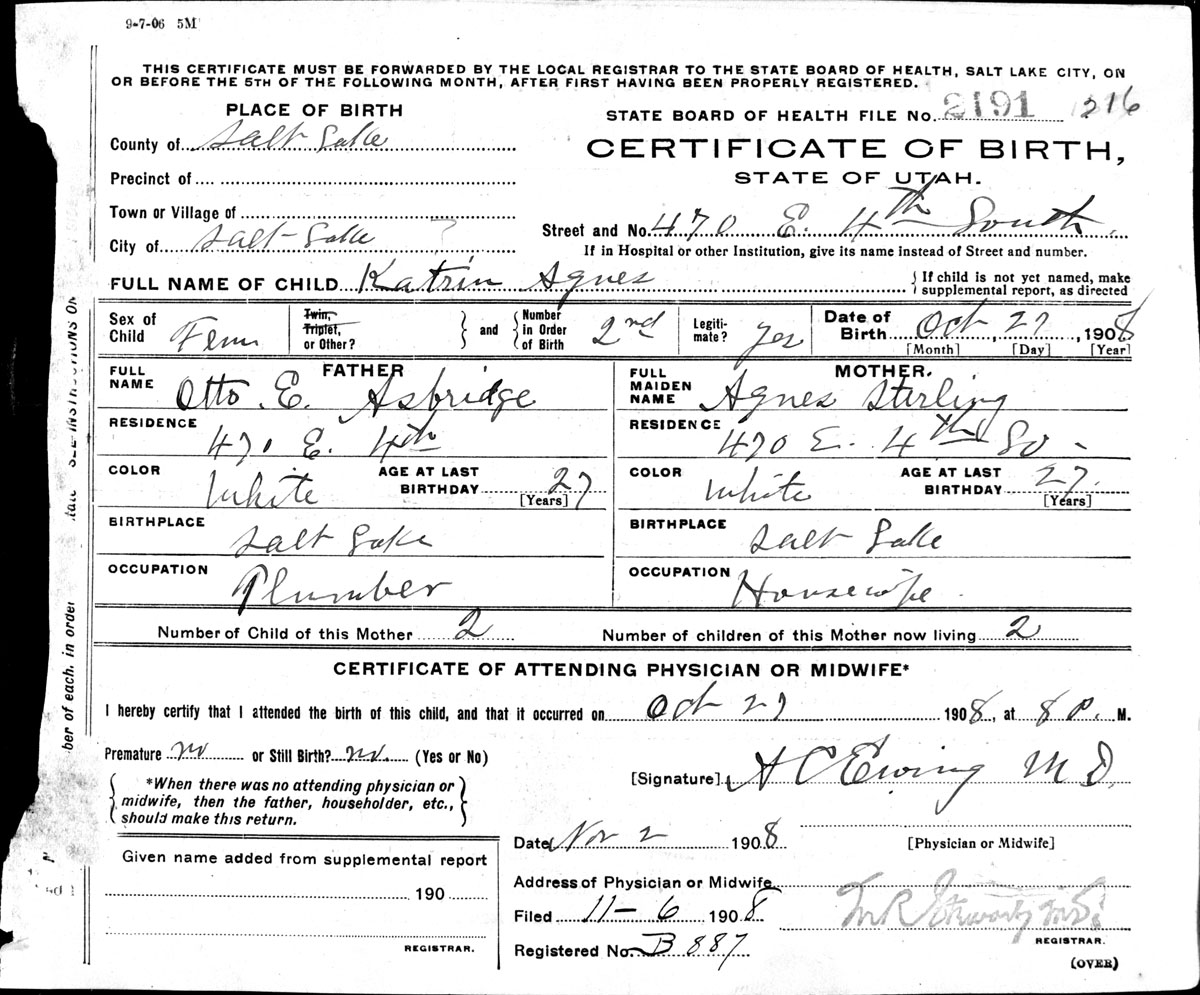 9-7-06 5M
THIS CERTIFICATE MUST BE FORWARDED BY THE LOCAL REGISTRAR TO THE STATE BOARD OF HEALTH, SALT LAKE CITY, ON
OR BEFORE THE 5TH OF THE FOLLOWING MONTH, AFTER FIRST HAVING BEEN PROPERLY REGISTERED.
PLACE OF BIRTH
County of Salt Lake
Precinct of
Town or Village of
City of Salt Lake
STATE BOARD OF HEALTH FILE No. 2191 216
CERTIFICATE OF BIRTH,
STATE OF UTAH.
Street and No. 470 E. 4th South.
If in Hospital or other Institution, give its name instead of Street and number.
FULL NAME OF CHILD Katrin Agnes
If child is not yet named, make
supplemental report, as directed
Sex of Child Fem
Twin, Triplet, or Other?
and
Number in Order of Birth 2nd
Legiti-mate? Yes
Date of Birth Oct 27, 1908
[Month] [Day] [Year]
FATHER
FULL NAME Otto. E. Asbridge
RESIDENCE 470 E. 4th
COLOR White AGE AT LAST BIRTHDAY 27
[Years]
BIRTHPLACE Salt Lake
OCCUPATION Plumber
MOTHER.
FULL MAIDEN NAME Agnes Sterling
RESIDENCE 470 E. 4th So -
COLOR White AGE AT LAST BIRTHDAY 27.
[Years]
BIRTHPLACE Salt Lake
OCCUPATION Housewife
Number of Child of this Mother 2 Number of children of this Mother now living 2
CERTIFICATE OF ATTENDING PHYSICIAN OR MIDWIFE*
I hereby certify that I attended the birth of this child, and that it occurred on Oct 27 1908, at 8 P. M.
Premature no or Still Birth? no. (Yes or No)
*When there was no attending physician or
midwife, then the father, householder, etc.,
should make this return.
[Signature] A C Ewing M D
Date Nov 2 1908
[Physician or Midwife]
Address of Physician or Midwife
Given name added from supplemental report
190
REGISTRAR.
Filed 11-6 1908
Registered No. B 887
REGISTRAR.
(OVER)
SEE INSTRUCTIONS ON
ber of each. in order